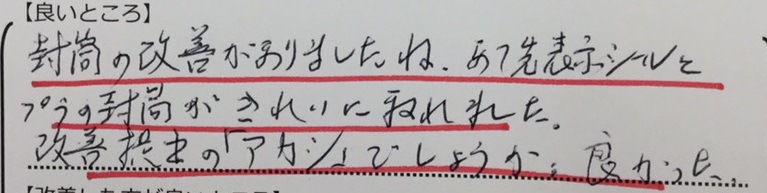 【良いところ】
封筒の改善がありましたね。あて先表示シールと
プラの封筒がきれいに取れました。
改善提案の「アカシ」でしょうか。良かった。
【改善した方が良いところ】